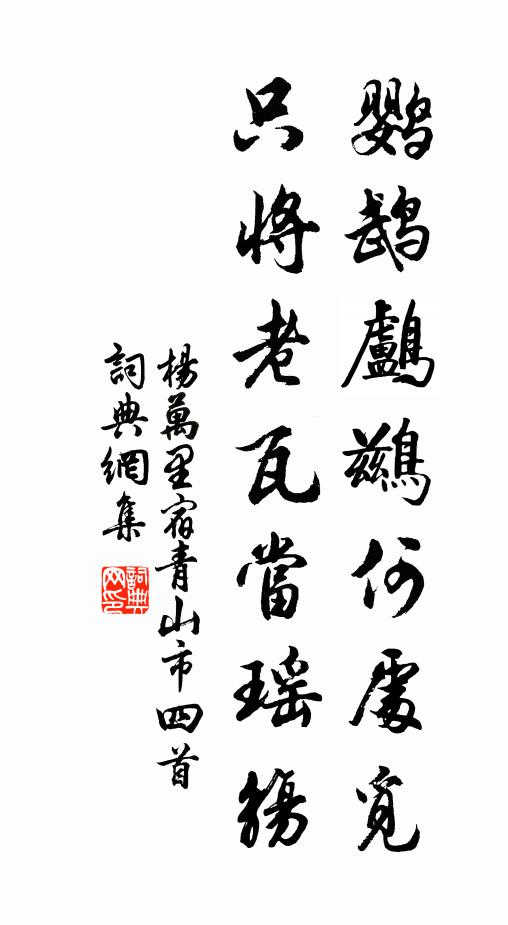 鸚鵡鸕鶿何處覓
只將老瓦當瑤觴
楊萬里宿青山市四首
詞典網集
詞典网印